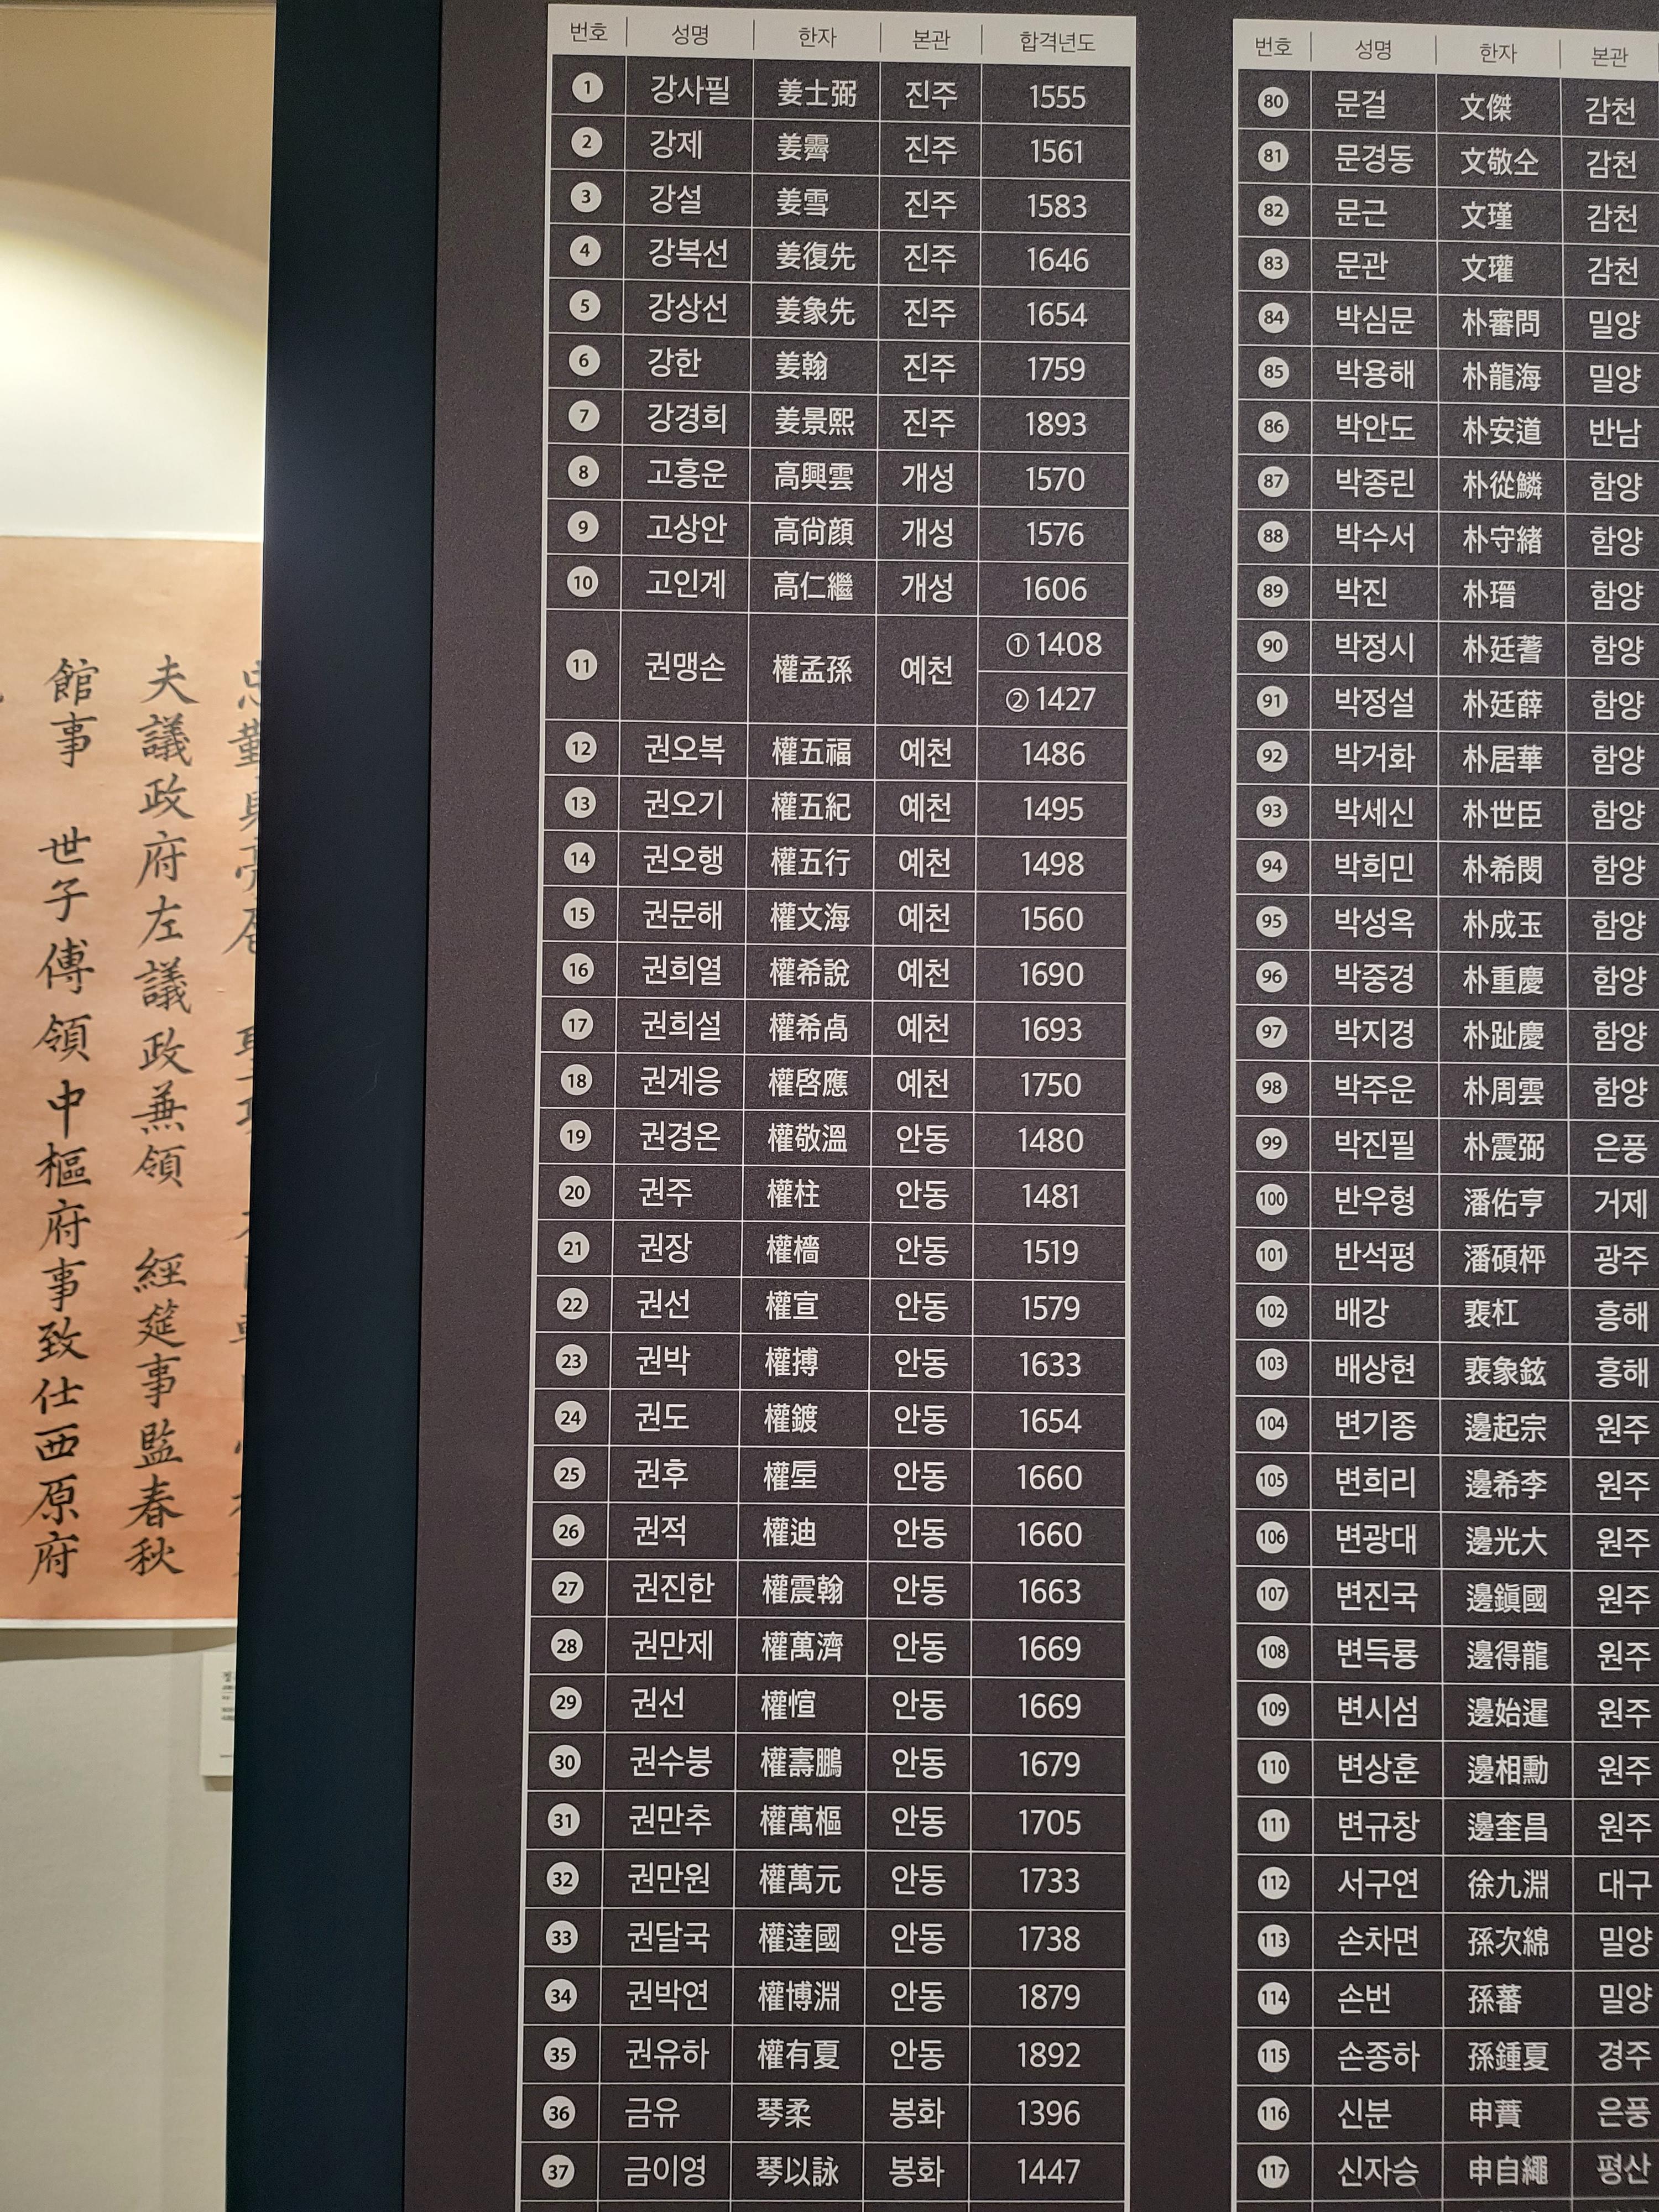 館事 世子傅領中樞府事致仕西原府
夫議政府左議政兼領 經筵事監春秋
번호 성명 한자 본관 합격년도
1 강사필 姜士弼 진주 1555
2 강제 姜霽 진주 1561
3 강설 姜雪 진주 1583
4 강복선 姜復先 진주 1646
5 강상선 姜象先 진주 1654
6 강한 姜翰 진주 1759
7 강경희 姜景熙 진주 1893
8 고흥운 高興雲 개성 1570
9 고상안 高尙顔 개성 1576
10 고인계 高仁繼 개성 1606
11 권맹손 權孟孫 예천 ① 1408
② 1427
12 권오복 權五福 예천 1486
13 권오기 權五紀 예천 1495
14 권오행 權五行 예천 1498
15 권문해 權文海 예천 1560
16 권희열 權希說 예천 1690
17 권희설 예천 1693
18 권계응 權啓應 예천 1750
19 권경온 權敬溫 안동 1480
20 권주 權柱 안동 1481
21 권장 權檣 안동 1519
22 권선 權宣 안동 1579
23 권박 權搏 안동 1633
24 권도 權鍍 안동 1654
25 권후 안동 1660
26 권적 權迪 안동 1660
27 권진한 權震翰 안동 1663
28 권만제 權萬濟 안동 1669
29 권선 權愃 안동 1669
30 권수붕 權壽鵬 안동 1679
31 권만추 權萬樞 안동 1705
32 권만원 權萬元 안동 1733
33 권달국 權達國 안동 1738
34 권박연 權博淵 안동 1879
35 권유하 權有夏 안동 1892
36 금유 琴柔 봉화 1396
37 금이영 琴以詠 봉화 1447
번호 성명 한자 본관
80 문걸 文傑 감천
81 문경동 文敬仝 감천
82 문근 文瑾 감천
83 문관 文瓘 감천
84 박심문 朴審問 밀양
85 박용해 朴龍海 밀양
86 박안도 朴安道 반남
87 박종린 朴從鱗 함양
88 박수서 朴守緖 함양
89 박진 朴瑨 함양
90 박정시 朴廷蓍 함양
91 박정설 朴廷薛 함양
92 박거화 朴居華 함양
93 박세신 朴世臣 함양
94 박희민 朴希閔 함양
95 박성옥 朴成玉 함양
96 박중경 朴重慶 함양
97 박지경 朴趾慶 함양
98 박주운 朴周雲 함양
99 박진필 朴震弼 은풍
100 반우형 潘佑亨 거제
101 반석평 潘碩枰 광주
102 배강 裵杠 흥해
103 배상현 裵象鉉 흥해
104 변기종 邊起宗 원주
105 변희리 邊希李 원주
106 변광대 邊光大 원주
107 변진국 邊鎭國 원주
108 변득룡 邊得龍 원주
109 변시섬 邊始暹 원주
110 변상훈 邊相勳 원주
111 변규창 邊奎昌 원주
112 서구연 徐九淵 대구
113 손차면 孫次綿 밀양
114 손번 孫蕃 밀양
115 손종하 孫鍾夏 경주
116 신분 申蕡 은풍
117 신자승 申自繩 평산